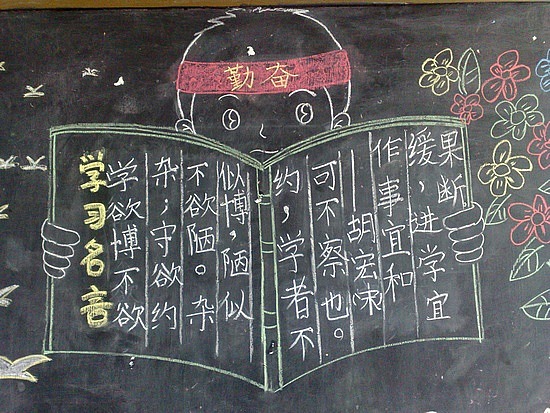 勤奋
学习名言
学欲博不欲
杂，守欲约
不欲陋。杂
似博，陋似
约，学者不
可不察也。
——胡宏
作事宜和
缓，进学宜
果断